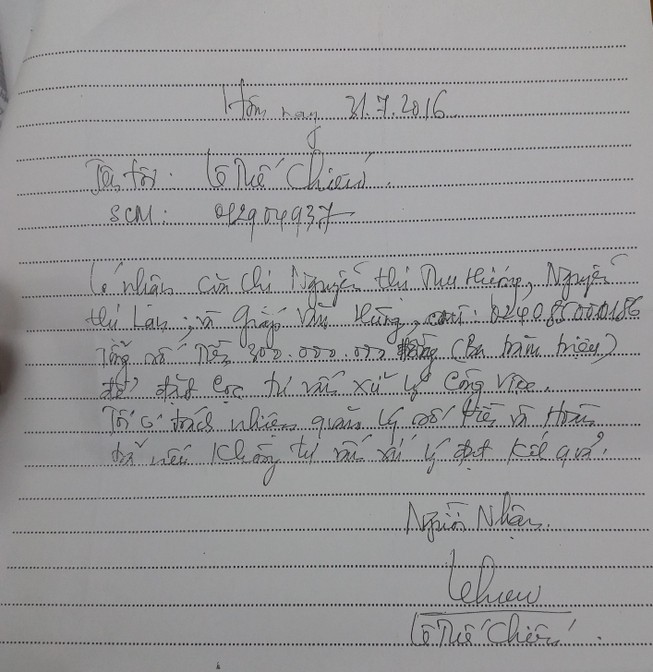 Hôm nay 31.7.2016
Tên tôi: Lê Thế Chiến.
SCM: 012904937
Có nhận của chị Nguyễn thị Thu Hương, Nguyễn
thị Lan; và Giáp Văn Hùng, cmt: 024085000186
Tổng số tiền 300.000.000 đồng (Ba trăm triệu)
để đặt cọc tư vấn xử lý công việc.
Tôi có trách nhiệm quản lý số tiền và Hoàn
trả nếu Không tư vấn xử lý đạt kết quả.
Người Nhận.
Lê Thế Chiến.